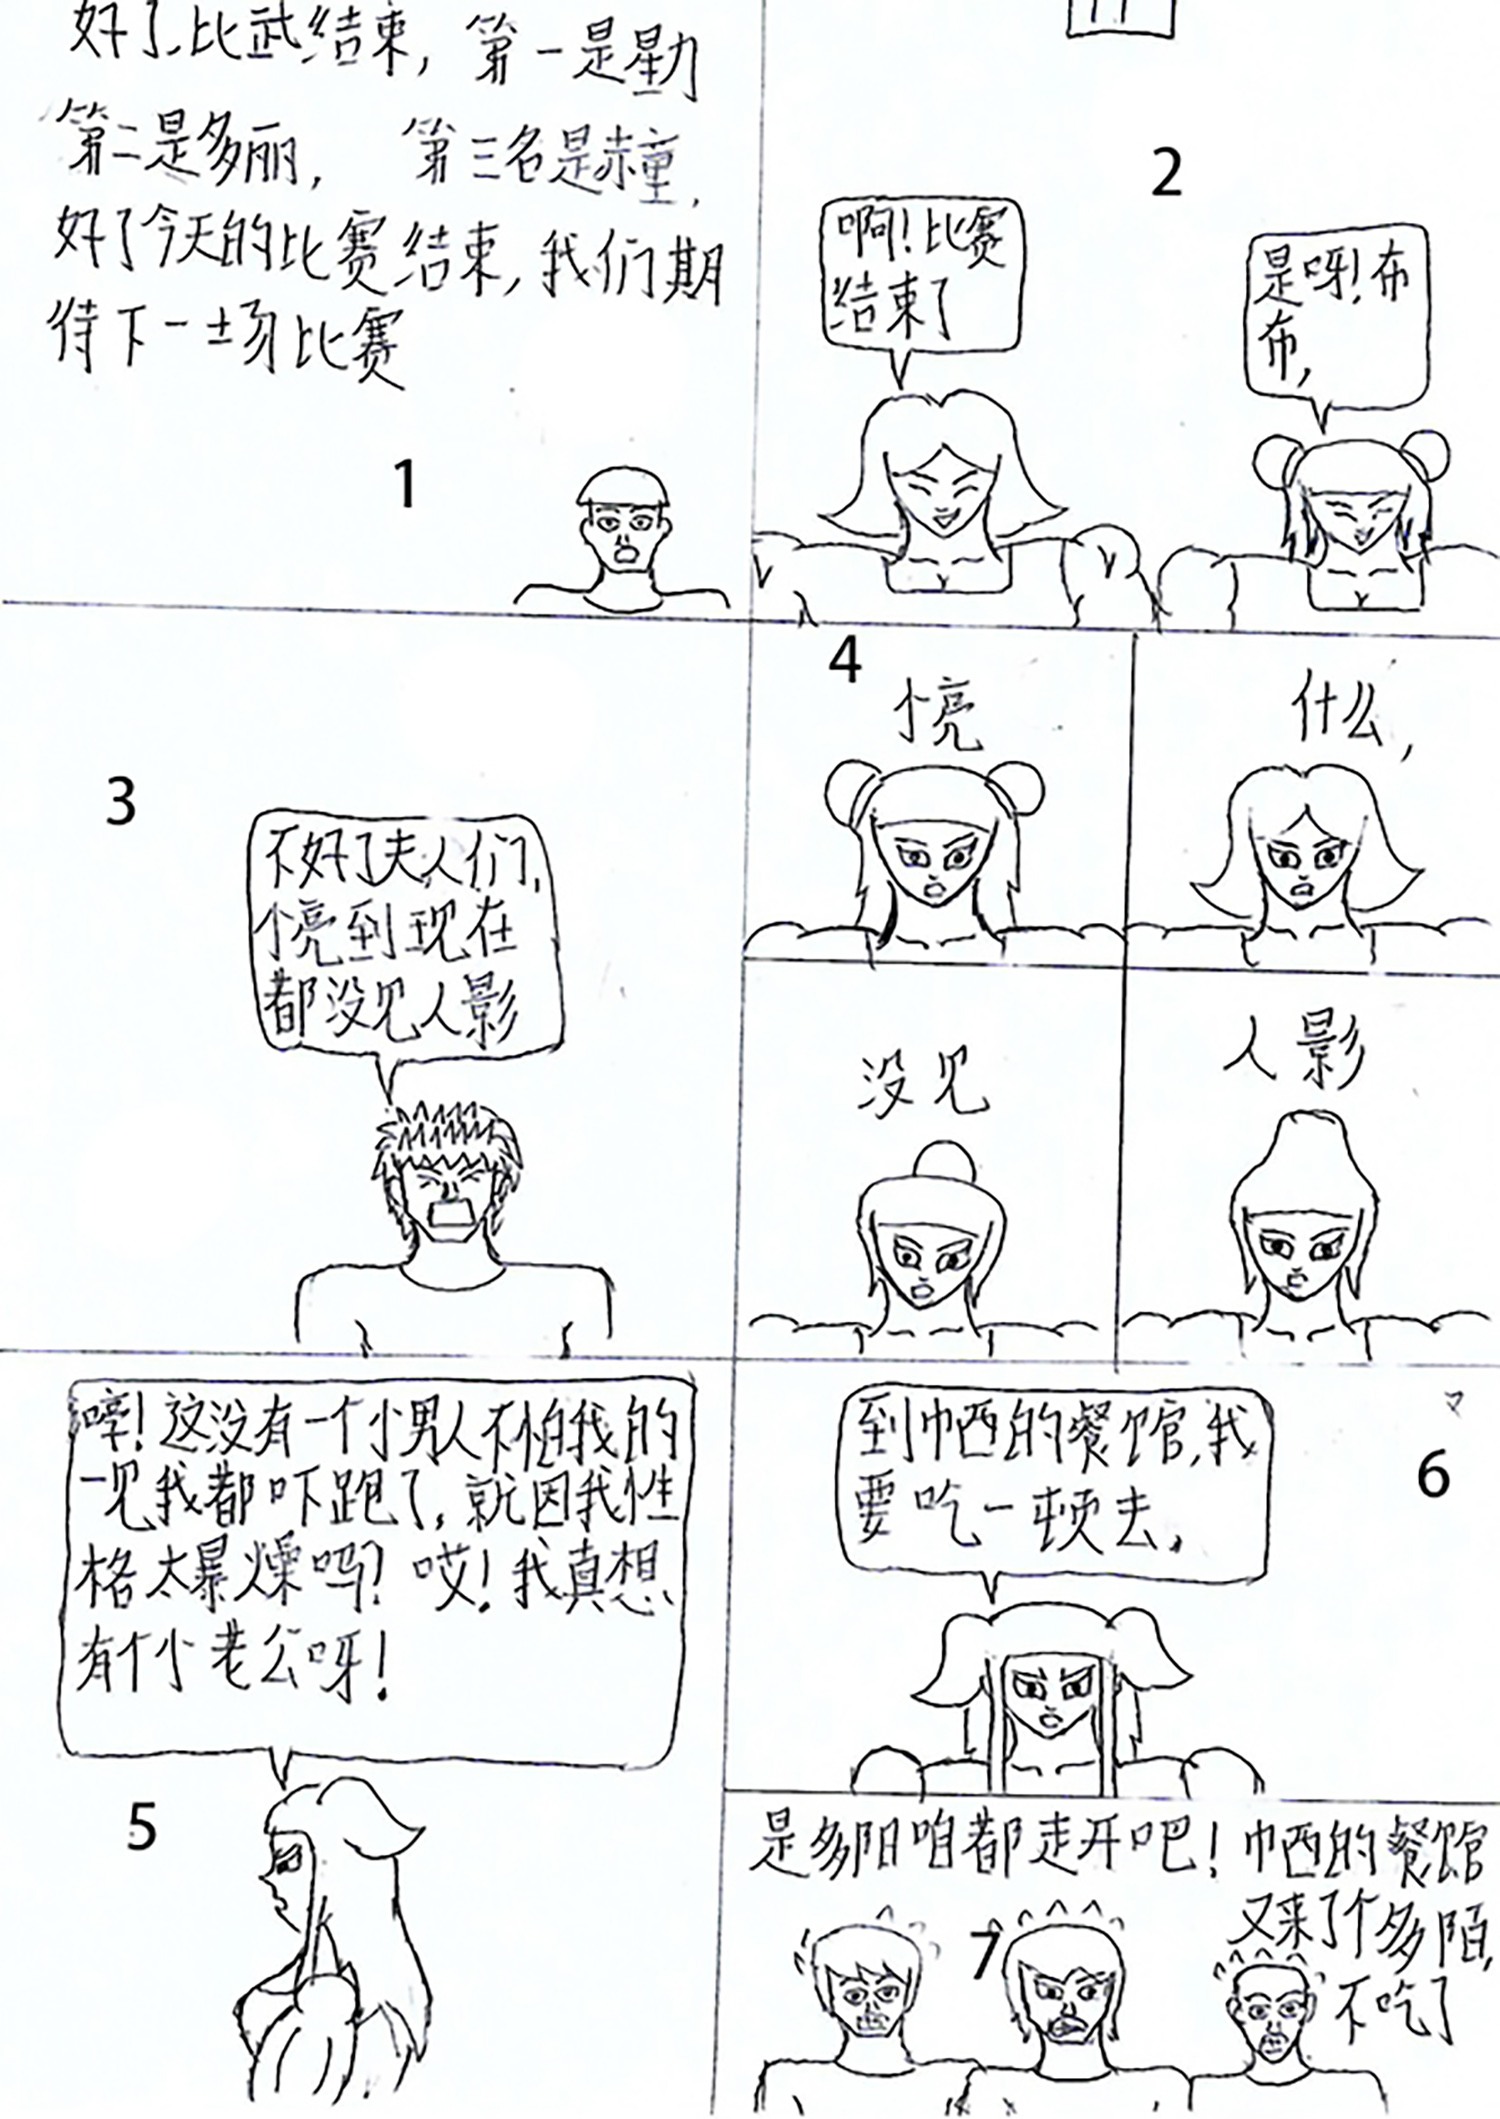 好了比武结束，第一是星力
第二是多丽，第三名是赤童，
好了今天的比赛结束，我们期
待下一场比赛
1
2
啊！比赛
结束了
是呀！布
布，
3
不好了夫人们，
惊到现在
都没见人影
4
惊
什么，
没见
人影
5
啐！这没有一个小男人不怕我的
一见我都吓跑了，就因我性
格太暴燥吗？哎！我真想
有个小老公呀！
6
又
到 的餐馆，我
要吃一顿去，
7
是多阳咱都走开吧！ 的餐馆
又来了个多陌，
不吃了